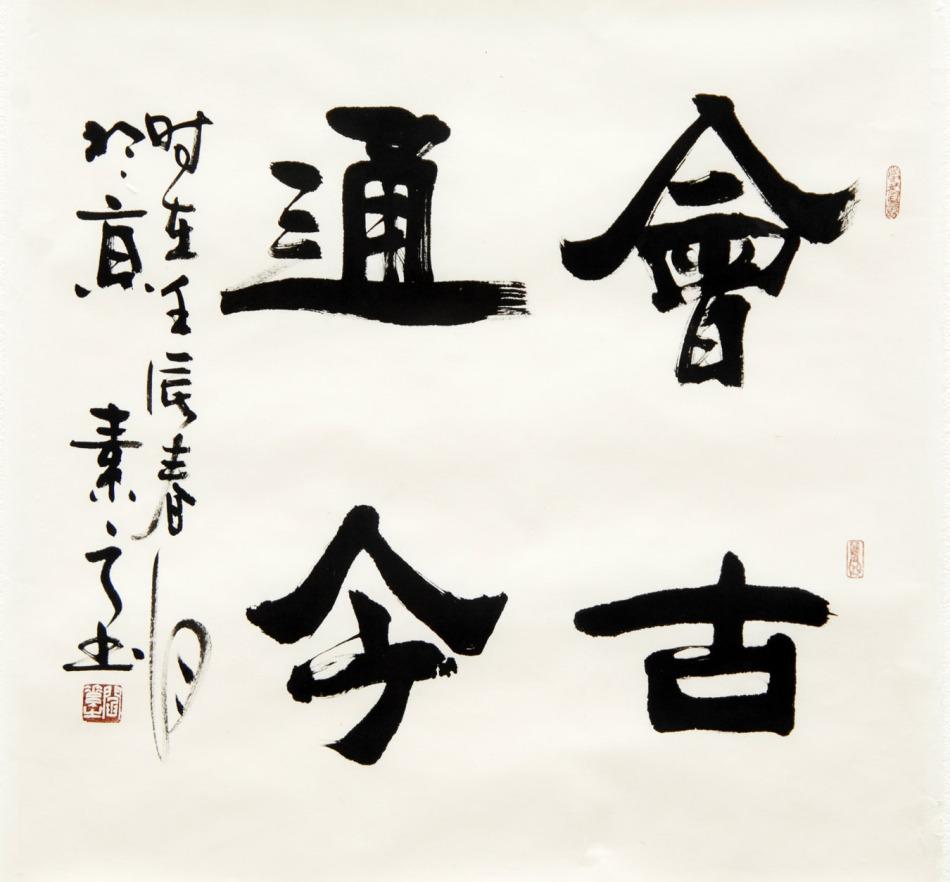 會古
通今
时在壬辰春月
於京 素之书